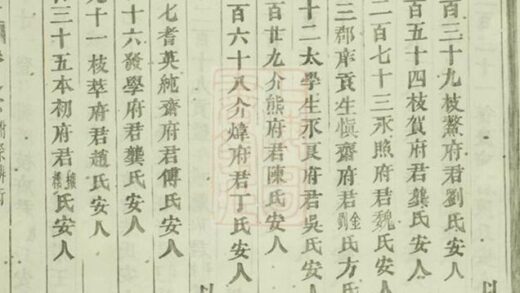 百三十九枝鰲府君劉氏安人
百五十四枝賀府君龔氏安人
二百七十三永照府君魏氏安人
三郡庠貢生愼齋府君金劉氏方氏
十二太學生永良府君吳氏安人
百廿九介熊府君陳氏安人
百六十八介煒府君丁氏安人
七耆英純齋府君傅氏安人
十六發學府君龔氏安人
九十一枝萃府君趙氏安人
三十五本初府君樓氏安人
以
以